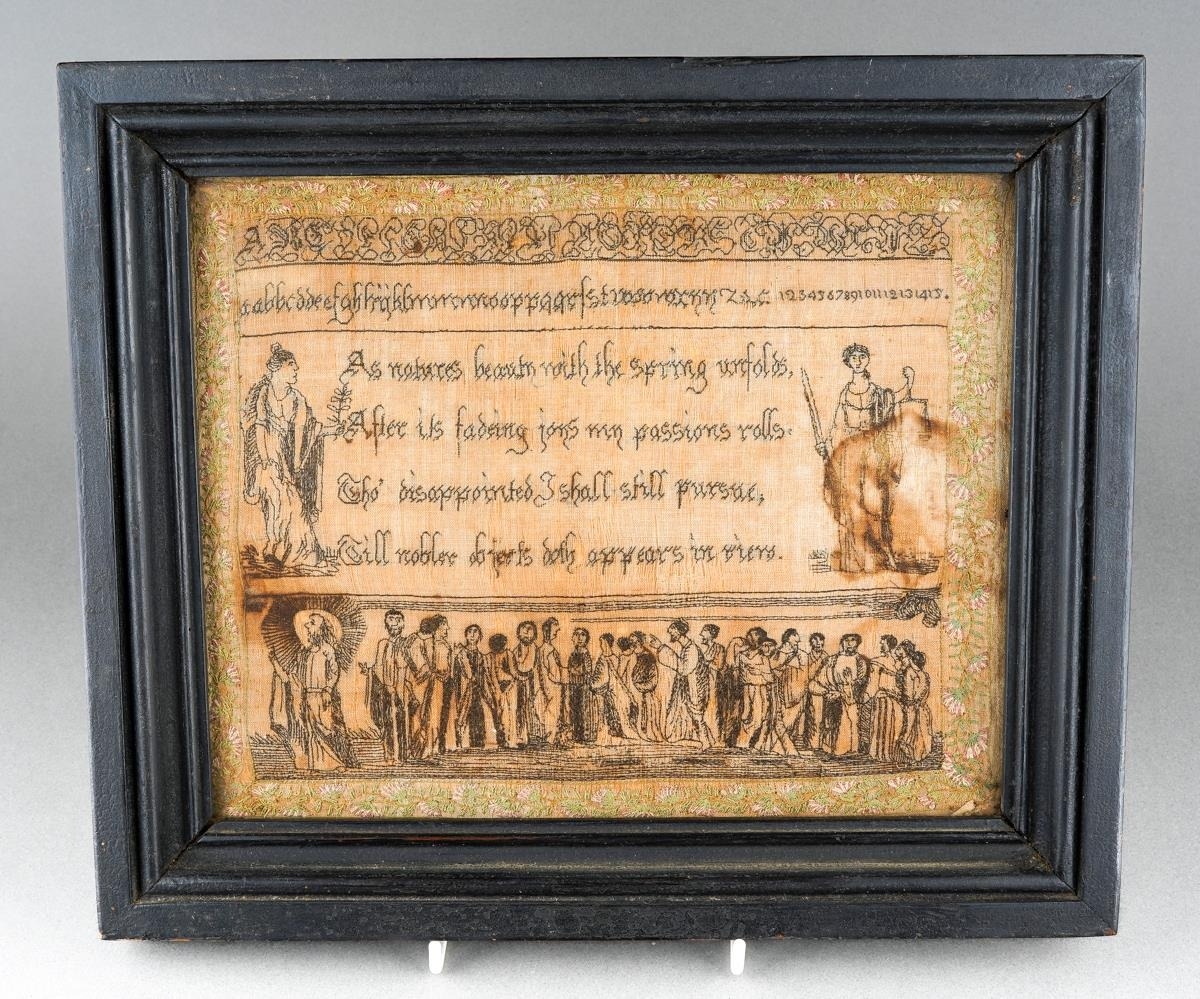 aabbcddeefghhijklmnooppqqrsstuvwxyyz&c. 123456789101112131415.
As natures beauty with the spring unfolds,
After its fadeing joys my passions rolls.
Tho' disappointed I shall still pursue,
Till nobler objects doth appears in view.